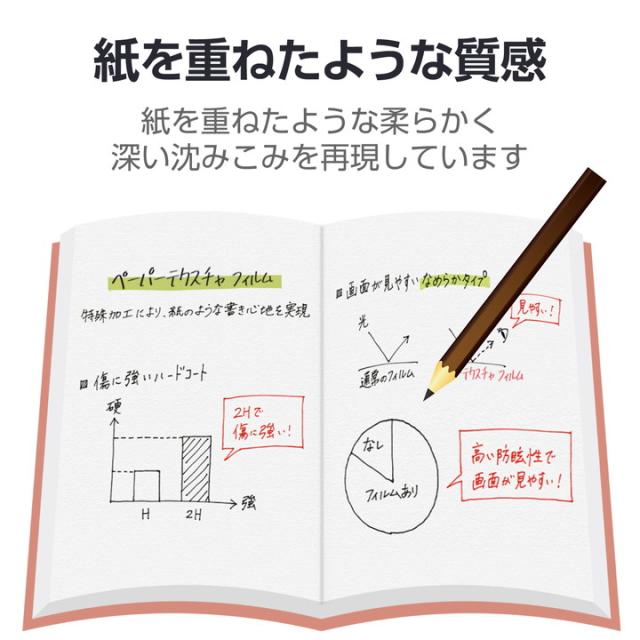 紙を重ねたような質感
紙を重ねたような柔らかく
深い沈みこみを再現しています
ペーパーテクスチャ フィルム
特殊加工により、紙のような書き心地を実現
傷に強いハードコート
硬
2Hで
傷に強い!
H
2H
強
画面が見やすいなめらかタイプ
光
見やすい!
通常のフィルム
テクスチャ フィルム
なし
フィルムあり
高い防眩性で
画面が見やすい!